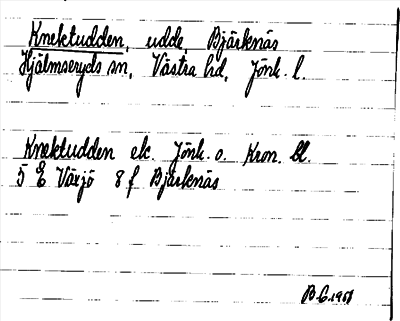 Knektudden, udde, Bjärknäs
Hjälmseryds sn, Västra hd, Jönk. l.
Knektudden ek. Jönk. o. Kron. bl.
5 E Växjö 8 f Bjärknäs